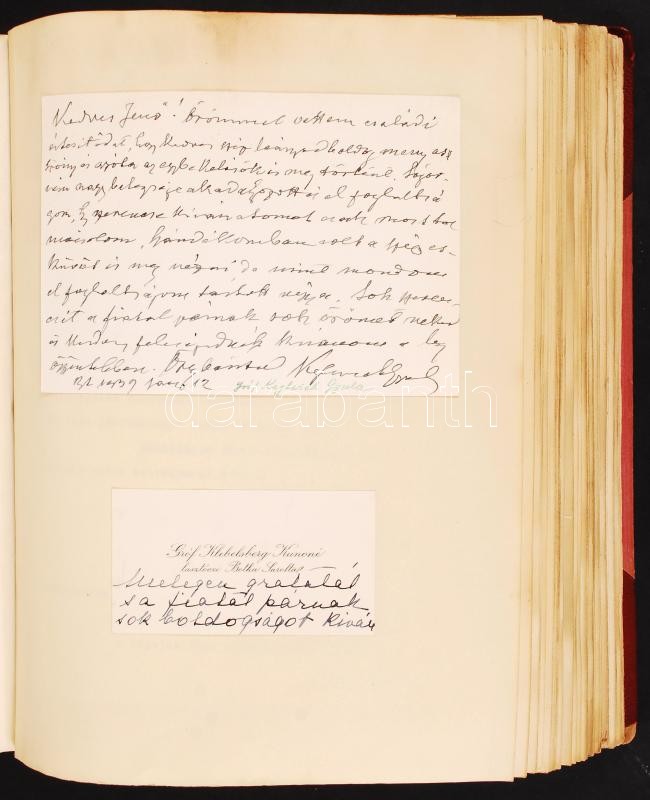 Kedves Jenő! Örömmel vettem családi
értesítődet, hogy kedves leányod boldog meny asz
szony és azóta az egybekelésök is meg történt. Sajos
nagy betegsége akadályozott és el foglaltsá
gom, hogy szerencse kivánatomat csak most tol
mácsolom. Szándékomban volt a szép es-
küvőt is meg nézni de mint mondom
el foglaltságom tartott vissza. Sok szeren-
csét a fiatal párnak sok örömet neked
és kedves feleségednek kivánom a leg
őszintébben. Öreg barátod
Bpt 1939 12 gróf Keglevich Gyula
darabanth
Gróf Klebelsberg Kunoné
Botka Sarolta
Melegen gratulál
s a fiatal párnak
sok boldogságot kiván